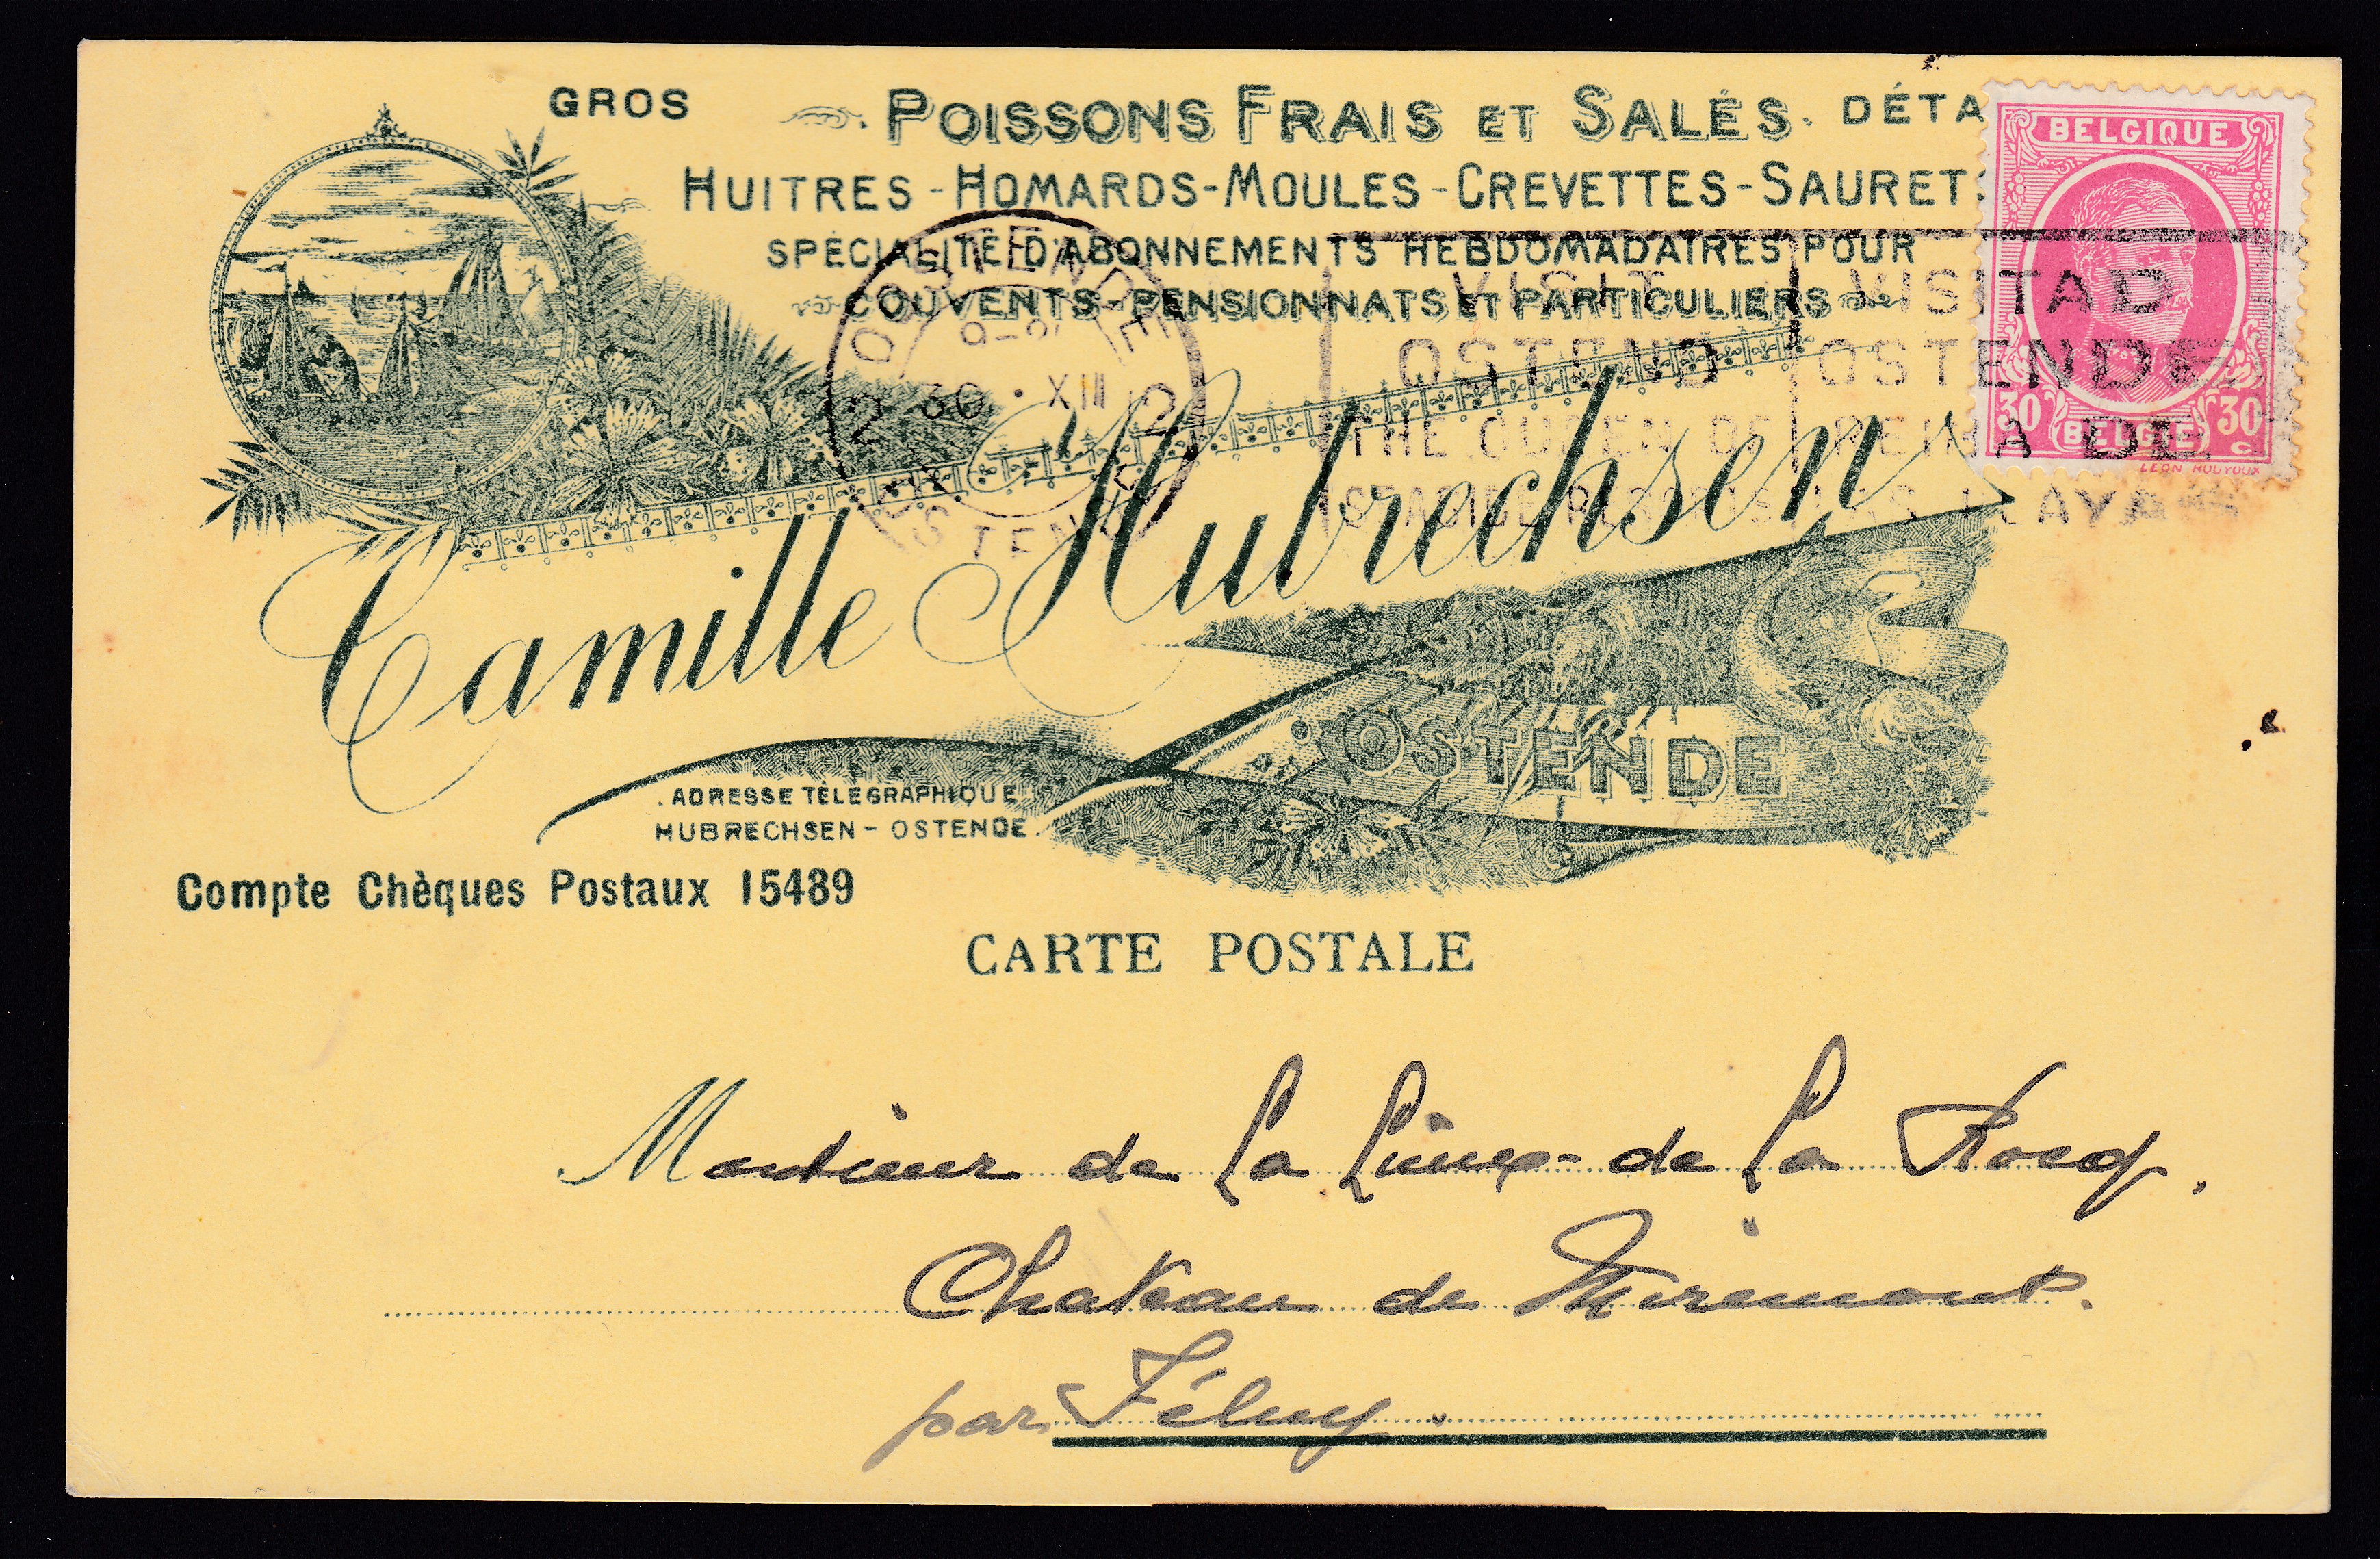 GROS POISSONS FRAIS ET SALÉS. DÉTA
HUITRES - HOMARDS - MOULES - CREVETTES - SAURET
SPÉCIALITÉ D'ABONNEMENTS HEBDOMADAIRES POUR
COUVENTS - PENSIONNATS ET PARTICULIERS
BELGIQUE
30 BELGIË 30 c
LÉON HOUYOUX
OOSTENDE
30 · XII
2 2
OSTENDE
VISIT
OSTEND
THE QUEEN OF
VISITAD
OSTENDE
REINA DE
PLAYAS
Camille Hubrechsen
OSTENDE
ADRESSE TÉLÉGRAPHIQUE
HUBRECHSEN - OSTENDE.
Compte Chèques Postaux 15489
CARTE POSTALE
Monsieur de La de La Rocq.
Chateau de Miremont.
par Féluy.